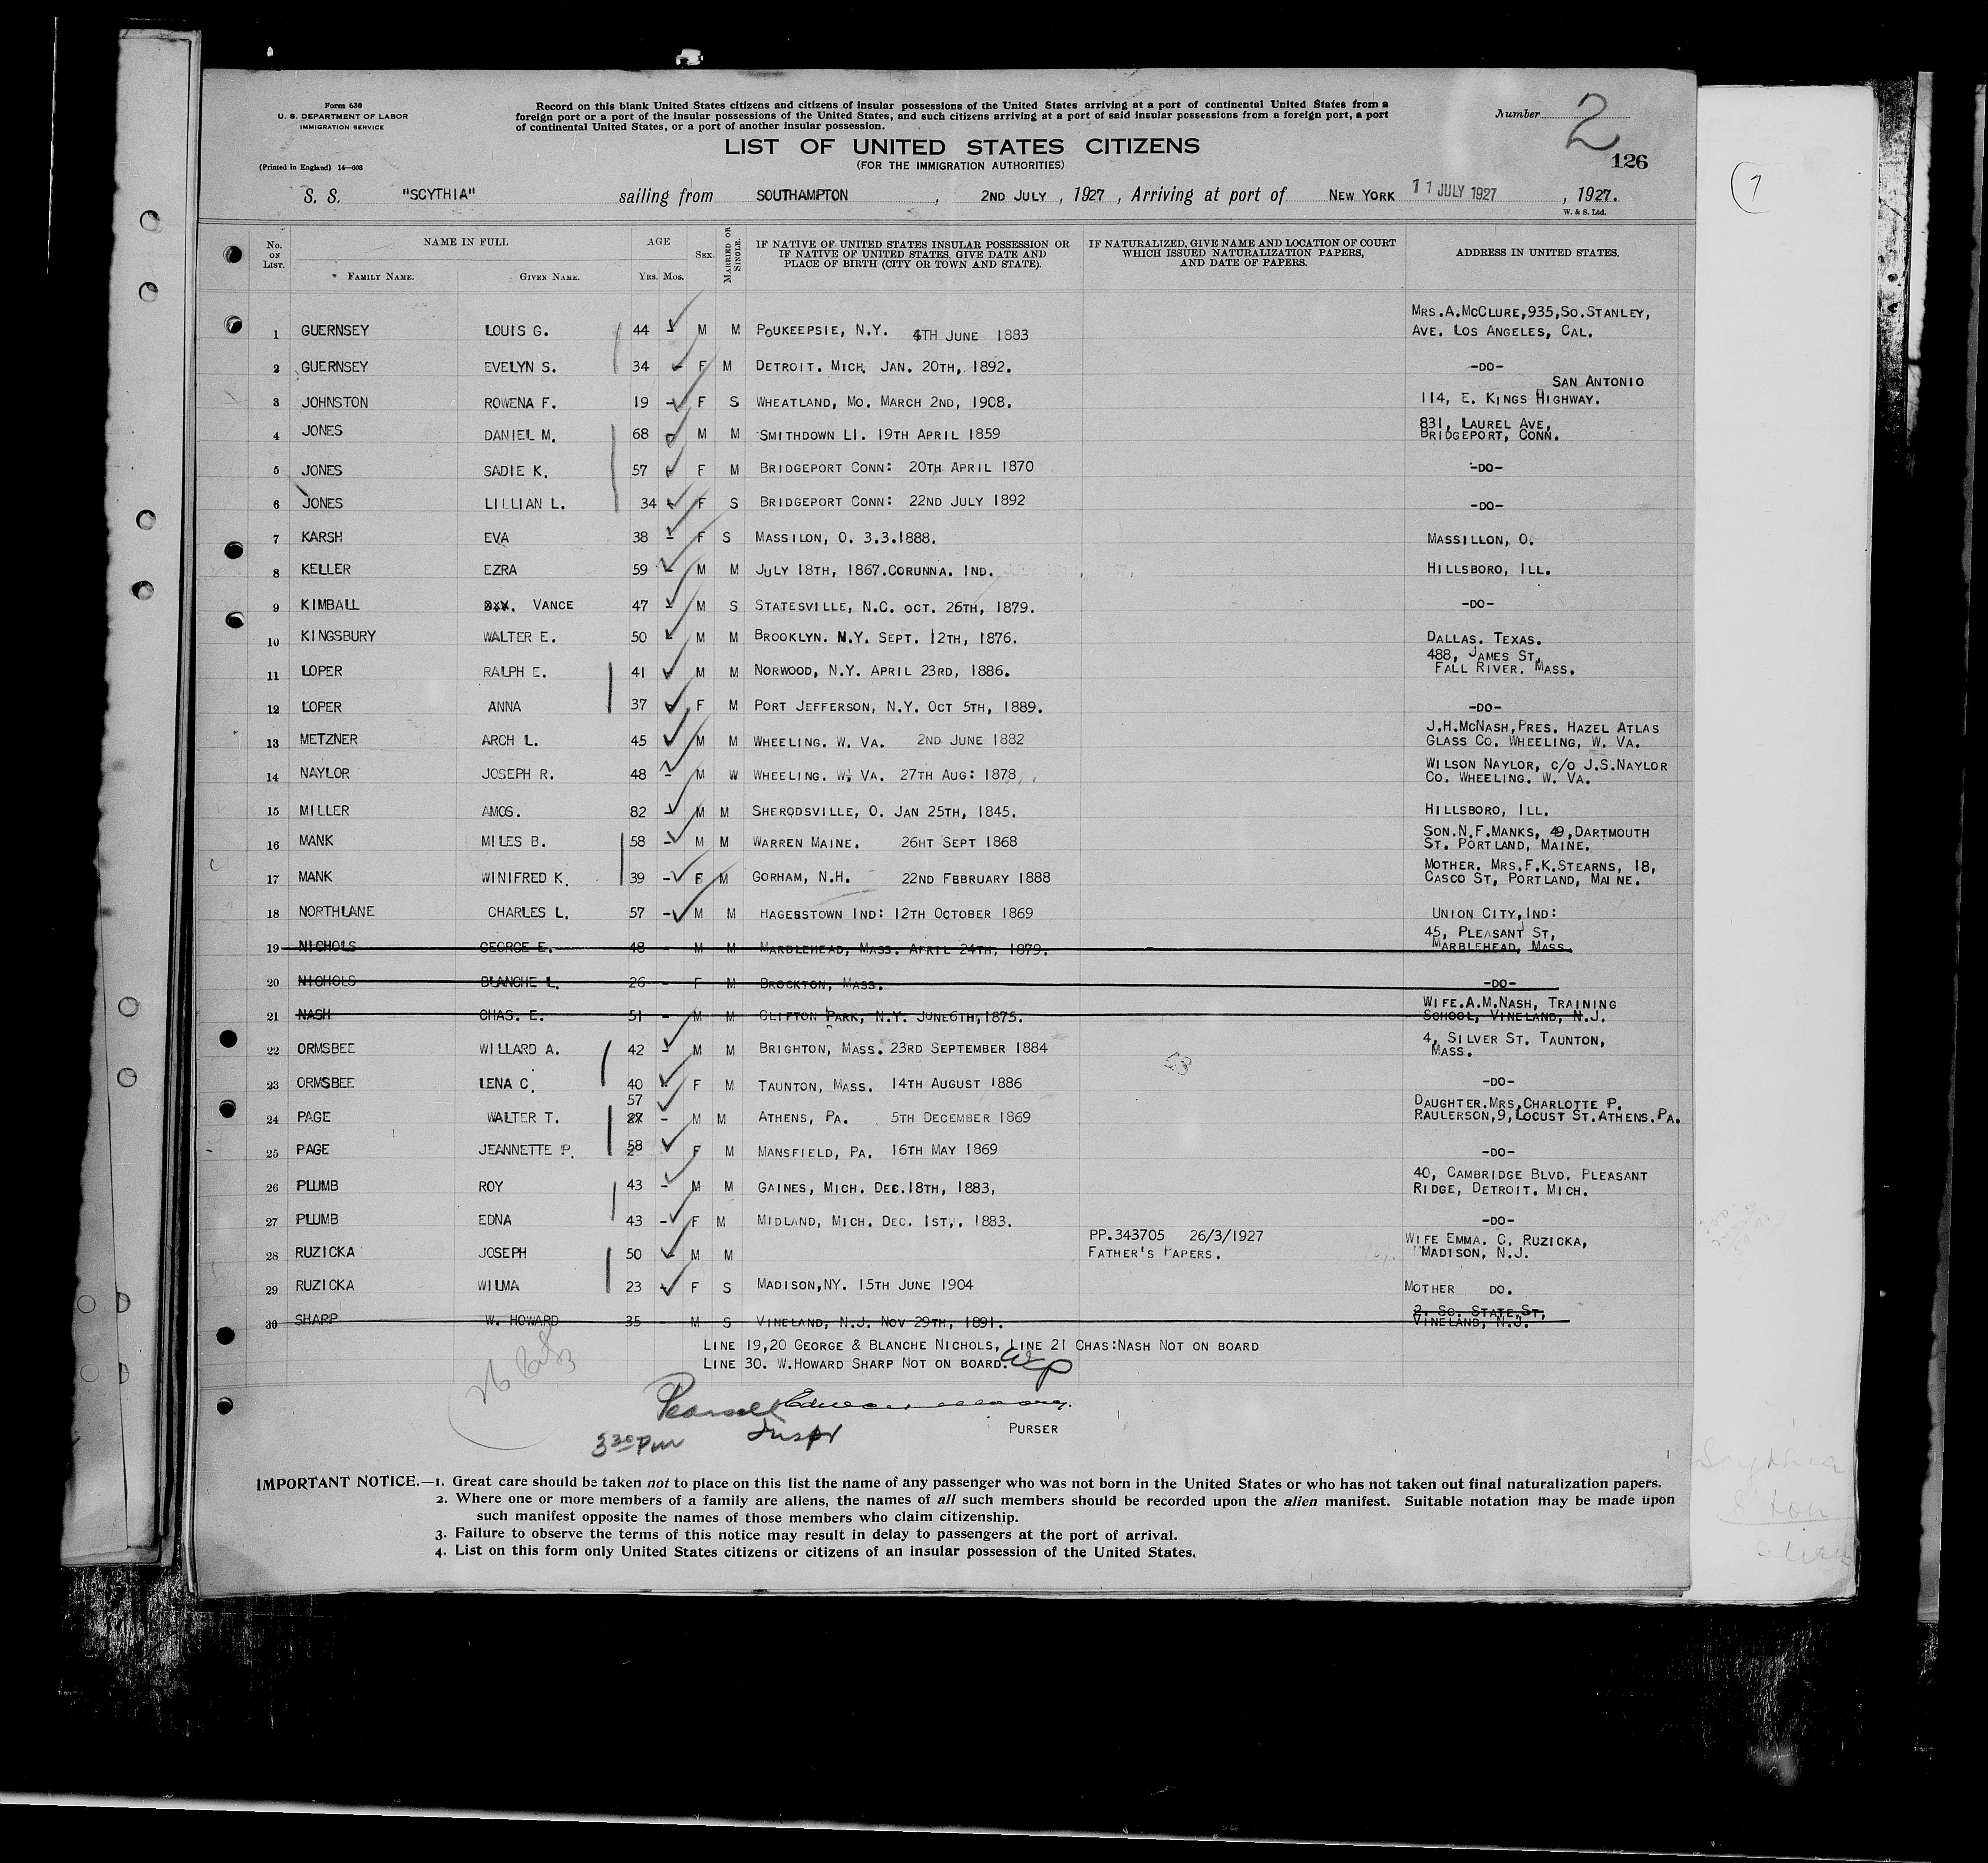 Form 630
U. S. DEPARTMENT OF LABOR
IMMIGRATION SERVICE
(Printed in England) 14—608
Record on this blank United States citizens and citizens of insular possessions of the United States arriving at a port of continental United States from a
foreign port or a port of the insular possessions of the United States, and such citizens arriving at a port of said insular possessions from a foreign port, a port
of continental United States, or a port of another insular possession.
Number 2
126
LIST OF UNITED STATES CITIZENS
(FOR THE IMMIGRATION AUTHORITIES)
S. S. "SCYTHIA" sailing from SOUTHAMPTON , 2ND JULY , 1927 , Arriving at port of NEW YORK 11 JULY 1927 , 1927.
W. & S. Ltd.
No. ON LIST. NAME IN FULL AGE SEX. MARRIED OR SINGLE. IF NATIVE OF UNITED STATES INSULAR POSSESSION OR IF NATIVE OF UNITED STATES, GIVE DATE AND PLACE OF BIRTH (CITY OR TOWN AND STATE). IF NATURALIZED, GIVE NAME AND LOCATION OF COURT WHICH ISSUED NATURALIZATION PAPERS, AND DATE OF PAPERS. ADDRESS IN UNITED STATES.
FAMILY NAME. GIVEN NAME. YRS. MOS.
1 GUERNSEY LOUIS G. 44 - M M POUKEEPSIE, N.Y. 4TH JUNE 1883 MRS.A.MCCLURE,935,SO.STANLEY, AVE. LOS ANGELES, CAL.
2 GUERNSEY EVELYN S. 34 - F M DETROIT. MICH. JAN. 20TH, 1892. -DO-
3 JOHNSTON ROWENA F. 19 - F S WHEATLAND, MO. MARCH 2ND, 1908. SAN ANTONIO 114, E. KINGS HIGHWAY.
4 JONES DANIEL M. 68 M M SMITHDOWN LI. 19TH APRIL 1859 831, LAUREL AVE, BRIDGEPORT, CONN.
5 JONES SADIE K. 57 F M BRIDGEPORT CONN: 20TH APRIL 1870 -DO-
6 JONES LILLIAN L. 34 - F S BRIDGEPORT CONN: 22ND JULY 1892 -DO-
7 KARSH EVA 38 - F S MASSILON, O. 3.3.1888. MASSILLON, O.
8 KELLER EZRA 59 - M M JULY 18TH, 1867.CORUNNA. IND. HILLSBORO, ILL.
9 KIMBALL VANCE 47 - M S STATESVILLE, N.C. OCT. 26TH, 1879. -DO-
10 KINGSBURY WALTER E. 50 - M M BROOKLYN. N.Y. SEPT. 12TH, 1876. DALLAS. TEXAS.
11 LOPER RALPH E. 41 - M M NORWOOD, N.Y. APRIL 23RD, 1886. 488, JAMES ST, FALL RIVER. MASS.
12 LOPER ANNA 37 - F M PORT JEFFERSON, N.Y. OCT 5TH, 1889. -DO-
13 METZNER ARCH L. 45 - M M WHEELING. W. VA. 2ND JUNE 1882 J.H.MCNASH,PRES. HAZEL ATLAS GLASS CO. WHEELING, W. VA.
14 NAYLOR JOSEPH R. 48 - M W WHEELING. W. VA. 27TH AUG: 1878, WILSON NAYLOR, C/O J.S.NAYLOR CO. WHEELING. W. VA.
15 MILLER AMOS. 82 - M M SHERODSVILLE, O. JAN 25TH, 1845. HILLSBORO, ILL.
16 MANK MILES B. 58 - M M WARREN MAINE. 26HT SEPT 1868 SON.N.F.MANKS, 49,DARTMOUTH ST. PORTLAND, MAINE.
17 MANK WINIFRED K. 39 - F M GORHAM, N.H. 22ND FBBRUARY 1888 MOTHER. MRS.F.K.STEARNS, 18, CASCO ST, PORTLAND, MAINE.
18 NORTHLANE CHARLES L. 57 - M M HAGEBSTOWN IND: 12TH OCTOBER 1869 UNION CITY, IND:
19 NICHOLS GEORGE E. 48 - M M MARBLEHEAD, MASS. APRIL 24TH, 1879. 45, PLEASANT ST, MARBLEHEAD, MASS.
20 NICHOLS BLANCHE L. 26 - F M BROCKTON, MASS. -DO-
21 NASH CHAS. E. 51 - M M CLIFTON PARK, N.Y. JUNE6TH,1875. WIFE.A.M.NASH, TRAINING SCHOOL, VINELAND, N.J.
22 ORMSBEE WILLARD A. 42 - M M BRIGHTON, MASS. 23RD SEPTEMBER 1884 4, SILVER ST. TAUNTON, MASS.
23 ORMSBEE LENA C. 40 F M TAUNTON, MASS. 14TH AUGUST 1886 -DO-
24 PAGE WALTER T. 57 - M M ATHENS, PA. 5TH DECEMBER 1869 DAUGHTER.MRS,CHARLOTTE P. RAULERSON,9,LOCUST ST.ATHENS.PA.
25 PAGE JEANNETTE P. 58 F M MANSFIELD, PA. 16TH MAY 1869 -DO-
26 PLUMB ROY 43 - M M GAINES, MICH. DEC.18TH, 1883, 40, CAMBRIDGE BLVD. PLEASANT RIDGE, DETROIT. MICH.
27 PLUMB EDNA 43 - F M MIDLAND, MICH. DEC. 1ST,. 1883. -DO-
28 RUZICKA JOSEPH 50 - M M PP.343705 26/3/1927 FATHER'S PAPERS. WIFE EMMA. C. RUZICKA, MADISON, N.J.
29 RUZICKA WILMA 23 - F S MADISON,NY. 15TH JUNE 1904 MOTHER DO.
30 SHARP W. HOWARD 35 M S VINELAND, N.J. NOV 29TH, 1891. 2, SO. STATE,ST, VINELAND, N.J.
LINE 19,20 GEORGE & BLANCHE NICHOLS, LINE 21 CHAS:NASH NOT ON BOARD
LINE 30. W.HOWARD SHARP NOT ON BOARD.
Inspr
3 30 PM
PURSER
IMPORTANT NOTICE.—1. Great care should be taken not to place on this list the name of any passenger who was not born in the United States or who has not taken out final naturalization papers.
2. Where one or more members of a family are aliens, the names of all such members should be recorded upon the alien manifest. Suitable notation may be made upon
such manifest opposite the names of those members who claim citizenship.
3. Failure to observe the terms of this notice may result in delay to passengers at the port of arrival.
4. List on this form only United States citizens or citizens of an insular possession of the United States.
Scythia